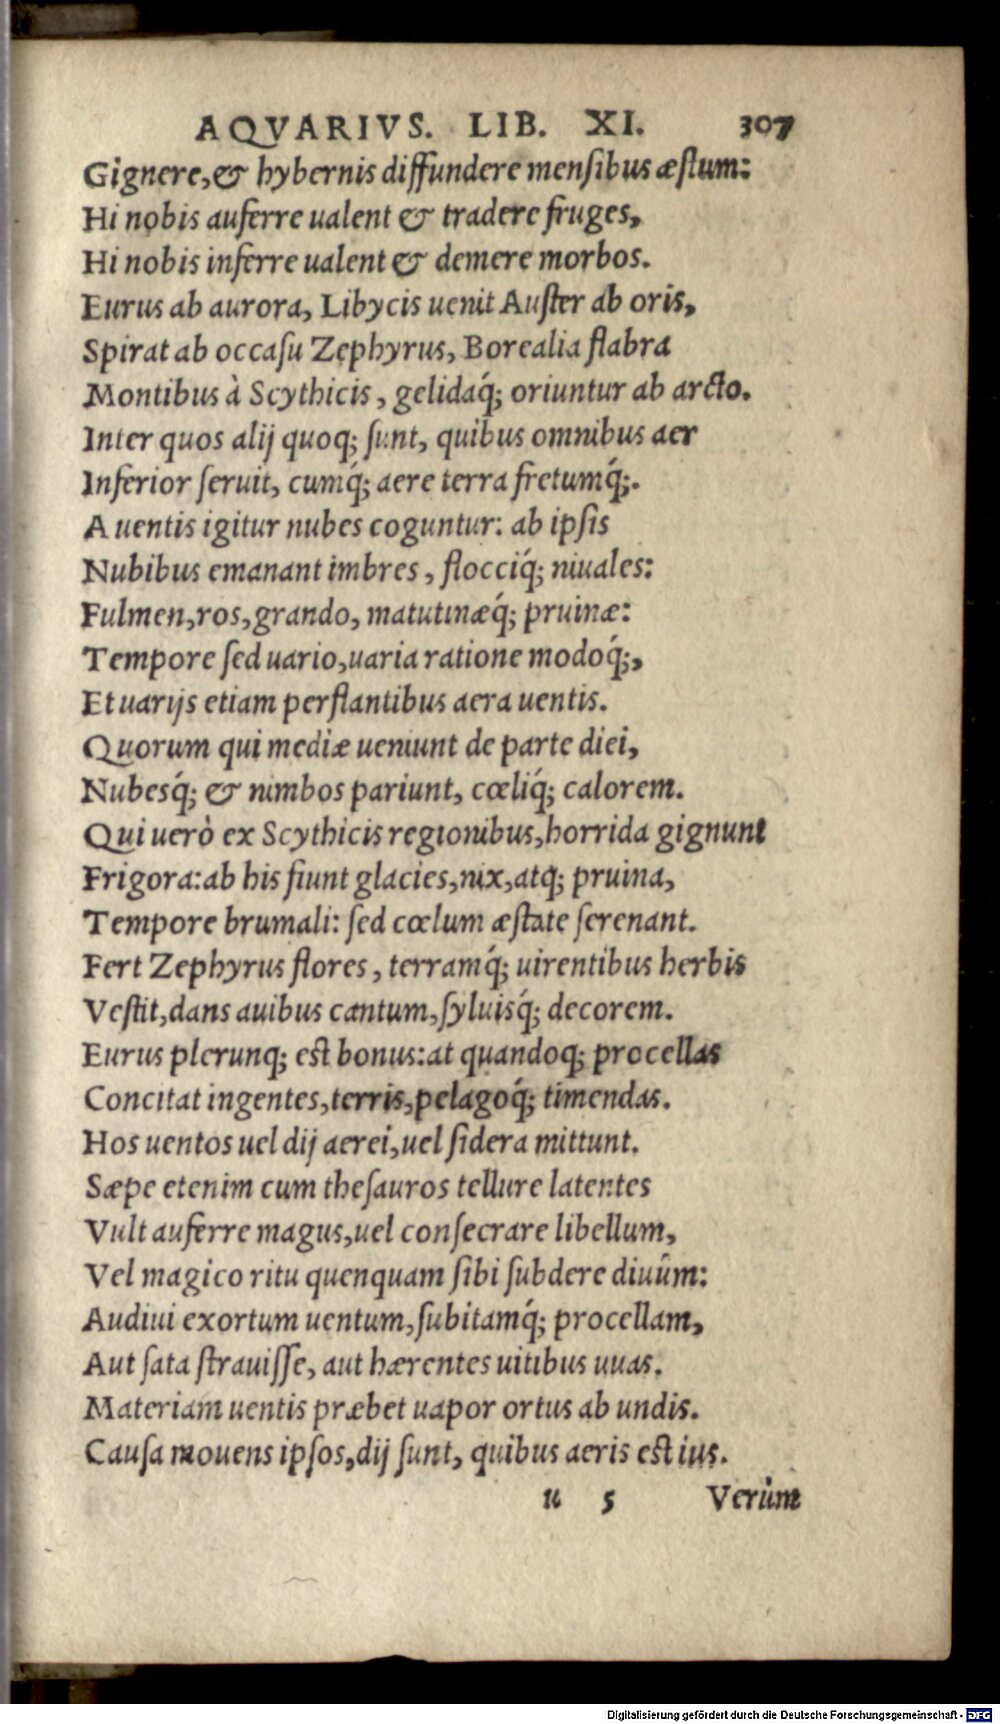 AQVARIVS. LIB. XI. 307
Gignere,& hybernis diffundere mensibus æstum:
Hi nobis auferre ualent & tradere fruges,
Hi nobis inferre ualent & demere morbos.
Eurus ab aurora, Libycis uenit Auster ab oris,
Spirat ab occasu Zephyrus, Borealia flabra
Montibus à Scythicis, gelidaq́; oriuntur ab arcto.
Inter quos alij quoq; sunt, quibus omnibus aer
Inferior seruit, cumq́; aere terra fretumq́;.
A uentis igitur nubes coguntur: ab ipsis
Nubibus emanant imbres, flocciq́; niuales:
Fulmen,ros,grando, matutinæq́; pruinæ:
Tempore sed uario,uaria ratione modoq́;,
Et uarijs etiam perflantibus aera uentis.
Quorum qui mediæ ueniunt de parte diei,
Nubesq́; & nimbos pariunt, cœliq́; calorem.
Qui uerò ex Scythicis regionibus,horrida gignunt
Frigora:ab his fiunt glacies,nix,atq; pruina,
Tempore brumali: sed cœlum æstate serenant.
Fert Zephyrus flores, terramq́; uirentibus herbis
Vestit,dans auibus cantum,syluisq́; decorem.
Eurus plerunq; est bonus:at quandoq; procellas
Concitat ingentes,terris,pelagoq́; timendas.
Hos uentos uel dij aerei,uel sidera mittunt.
Sæpe etenim cum thesauros tellure latentes
Vult auferre magus,uel consecrare libellum,
Vel magico ritu quenquam sibi subdere diuûm:
Audiui exortum uentum,subitamq́; procellam,
Aut sata strauisse, aut hærentes uitibus uuas.
Materiam uentis præbet uapor ortus ab undis.
Causa mouens ipsos,dij sunt, quibus aeris est ius.
u 5 Verùm
Digitalisierung gefördert durch die Deutsche Forschungsgemeinschaft - DFG